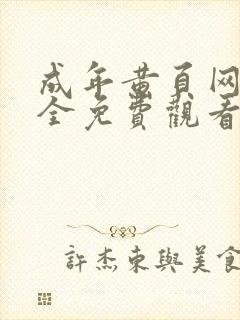 成年黄頁网
全免費觀看
許杰東與美食